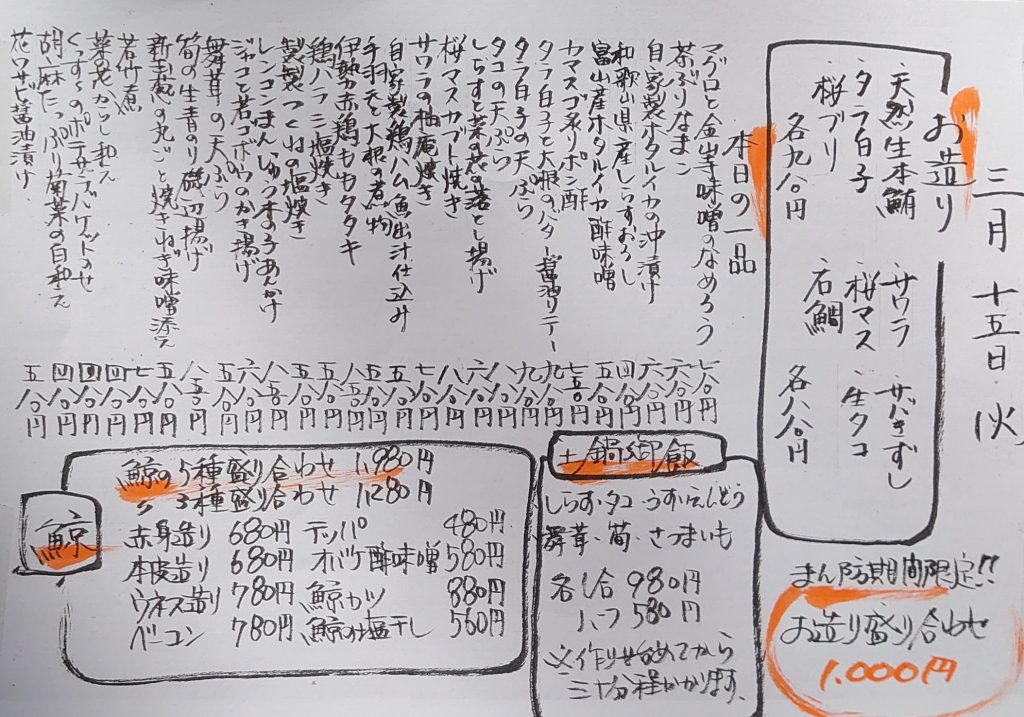 三月十五日火
お造り
・天然生本鮪
・タラ白子
・桜ブリ
各九八〇円
・サワラ
・桜マス
・石鯛
・サバきずし
・生タコ
各八八〇円
本日の一品
マグロと金山寺味噌のなめろう
茶ぶりなまこ
自家製ホタルイカの沖漬け
和歌山県産しらすおろし
富山産ホタルイカ酢味噌
カマスゴ炙りポン酢
タラ白子と大根のバター醤油ソテー
タラ白子の天ぷら
タコの天ぷら
しらすと菜の花の落とし揚げ
桜マスカブト焼き
サワラの柚庵焼き
自家製鶏ハム魚出汁仕込み
手羽元と大根の煮物
伊勢赤鶏ももタタキ
鶏ハラミ塩焼き
つくねの塩焼き
レンコンまんじゅうきのこあんかけ
ジャコと若ゴボウのかき揚げ
舞茸の天ぷら
筍の生青のり磯辺揚げ
新玉葱の丸ごと焼きねぎ味噌添え
若竹煮
菜の花からし和え
ポテサラバケットのせ
胡麻たっぷり菊菜の白和え
花ワサビ醤油漬け
七八〇円
六八〇円
六八〇円
四八〇円
五八〇円
七五〇円
九八〇円
九八〇円
鯨
鯨の5種盛り合わせ 1,980円
〃 3種盛り合わせ 1,280円
赤身造り 680円 テッパ 480円
本皮造り 680円 オバケ酢味噌 580円
ウネス造り 780円 鯨カツ 880円
ベーコン 780円 鯨の塩干し 560円
土鍋御飯
しらす・タコ・うすいえんどう
舞茸・筍・さつまいも
各1合 980円
ハーフ 580円
※作り始めてから
三十分程かかります。
まん防期間限定!!
お造り盛り合わせ
1,000円